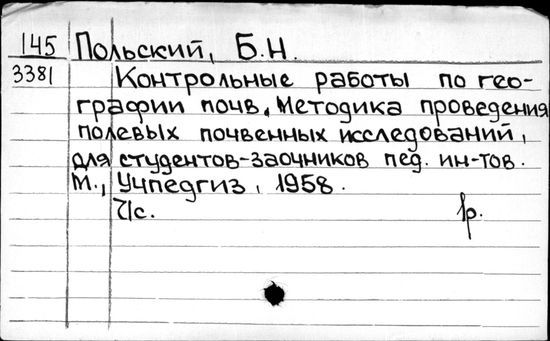 145 Польский, Б.Н.
3381 Контрольные работы по гео-
графии почв. Методика проведения
полевых почвенных исследований,
для студентов-заочников пед. ин-тов.
М., Учпедгиз, 1958.
1р.